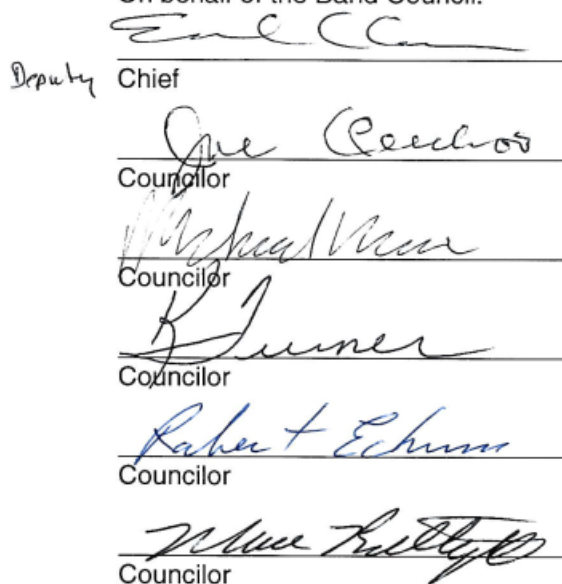 On behalf of the Band Council:
Earl C
Deputy Chief
Joe Cheechoo
Councilor
Michael
Councilor
K Turner
Councilor
Robert Echum
Councilor
Councilor